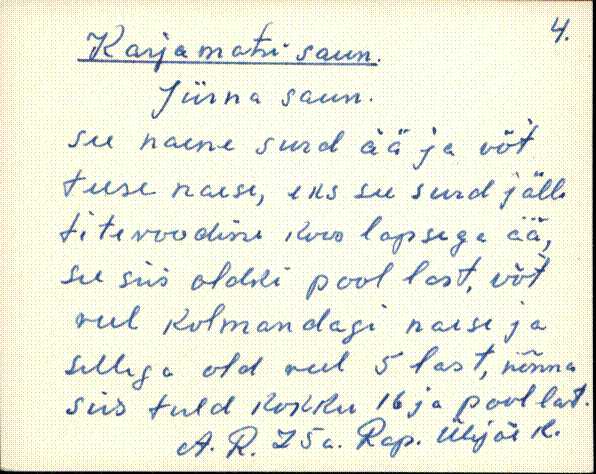 4.
Karjamatsi saun.
Jürna saun.
su naene surd ää ja võt
tuse naese, eks su surd jälle
titevoodise koos lapsega ää,
su siis oldki pool last, võt
veel kolmandagi naese ja
sellega old veel 5 last, nõnna
siis tuld kokku 16 ja pool last.
A. R. 75a. Rap. Ülejõe k.